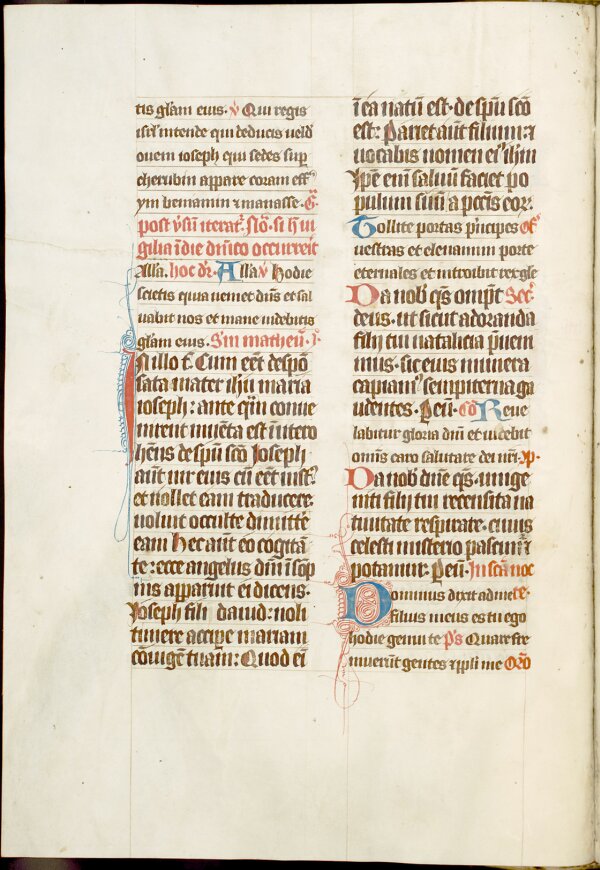 tis gl̄am eius. v̄ Qui regis
isr̄l intende qui deducis uelud
ouem ioseph qui sedes sup̄
cherubin appare coram eff
ym beniamin ⁊ manasse. G̅
post v̄sū iterat᷑
gilia ī die dn̄ico occurrerit
Alla. hoc dr̄. Alla v̄ Hodie
scietis quia ueniet dn̄s et sal
uabit nos et mane uidebitis
gl̄am eius. S'm matheū.
IN illo t̄. Cum eēt despō
sata mater ih̄u maria
ioseph: ante q̄m conue
nirent inuēta est ī utero
hēns de sp̄u sc̄o Ioseph
aūt uir eius cū eēt iust᷒
et nollet eam traducere.
uoluit occulte dimitte
eam Hec aūt eo cogitā
te: ecce angelus dn̄i ī sop
nis apparuit ei dicens.
Ioseph fili dauid: noli
timere accipe mariam
cōiugē tuam: Quod eī
ī ea natū est. de sp̄u sc̄o
est: Pariet aūt filium: ⁊
uocabis nomen ei᷒ ih̄m
Ip̄e eni᷒ saluū faciet po
pulum suū a pecc̄is eor᷒.
Tollite portas p̄ncipes Off᷒
uestras et eleuamini porte
eternales et introibit rex gl̄e
Da nob̄ q̄s om̄pt̄ Sec̄
deus. ut sicut adoranda
filij tui natalicia p̄ueni
mus. sic eius munera
capiam᷒ sempiterna ga
udentes. Per eū. Cō Reue
labitur gloria dn̄i et uidebit
om̄is caro salutare dei nr̄i.
Da nob̄ dn̄e q̄s. unige
niti filij tui recensita na
tiuitate respirare. cuius
celesti misterio pascim᷒ ⁊
potamur. Per eū. In sc̄a noc
Dominus dixit ad me te.
filius meus es tu ego
hodie genui te p̄s Quare fre
muerūt gentes ⁊ pp̄li me Or̄o